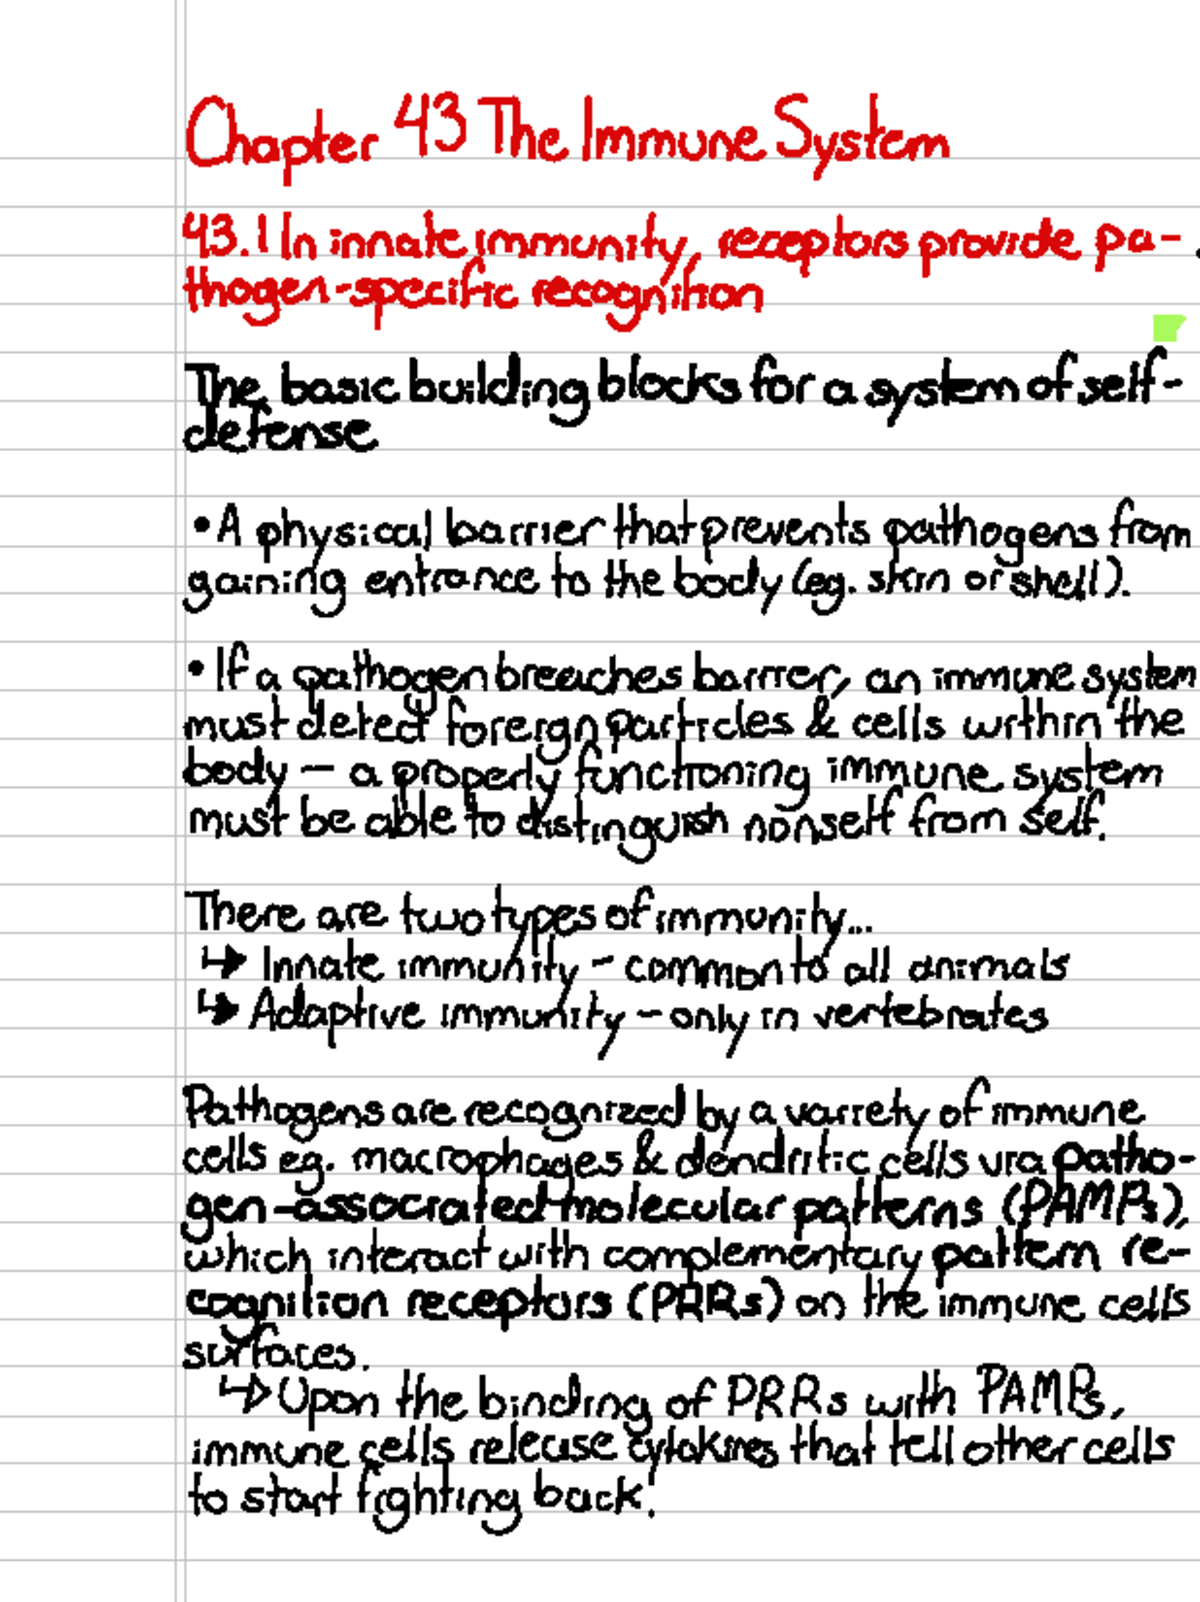 Chapter 43 The Immune System
43.1 In innate immunity, receptors provide pa-
thogen-specific recognition
The basic building blocks for a system of self-
defense
• A physical barrier that prevents pathogens from
gaining entrance to the body (eg. skin or shell).
• If a pathogen breaches barrier, an immune system
must detect foreign particles & cells within the
body – a properly functioning immune system
must be able to distinguish nonself from self.
There are two types of immunity...
↳ Innate immunity – common to all animals
↳ Adaptive immunity – only in vertebrates
Pathogens are recognized by a variety of immune
cells eg. macrophages & dendritic cells via patho-
gen-associated molecular patterns (PAMPs),
which interact with complementary pattern re-
cognition receptors (PRRs) on the immune cells
surfaces.
↳ Upon the binding of PRRs with PAMPs,
immune cells release cytokines that tell other cells
to start fighting back!